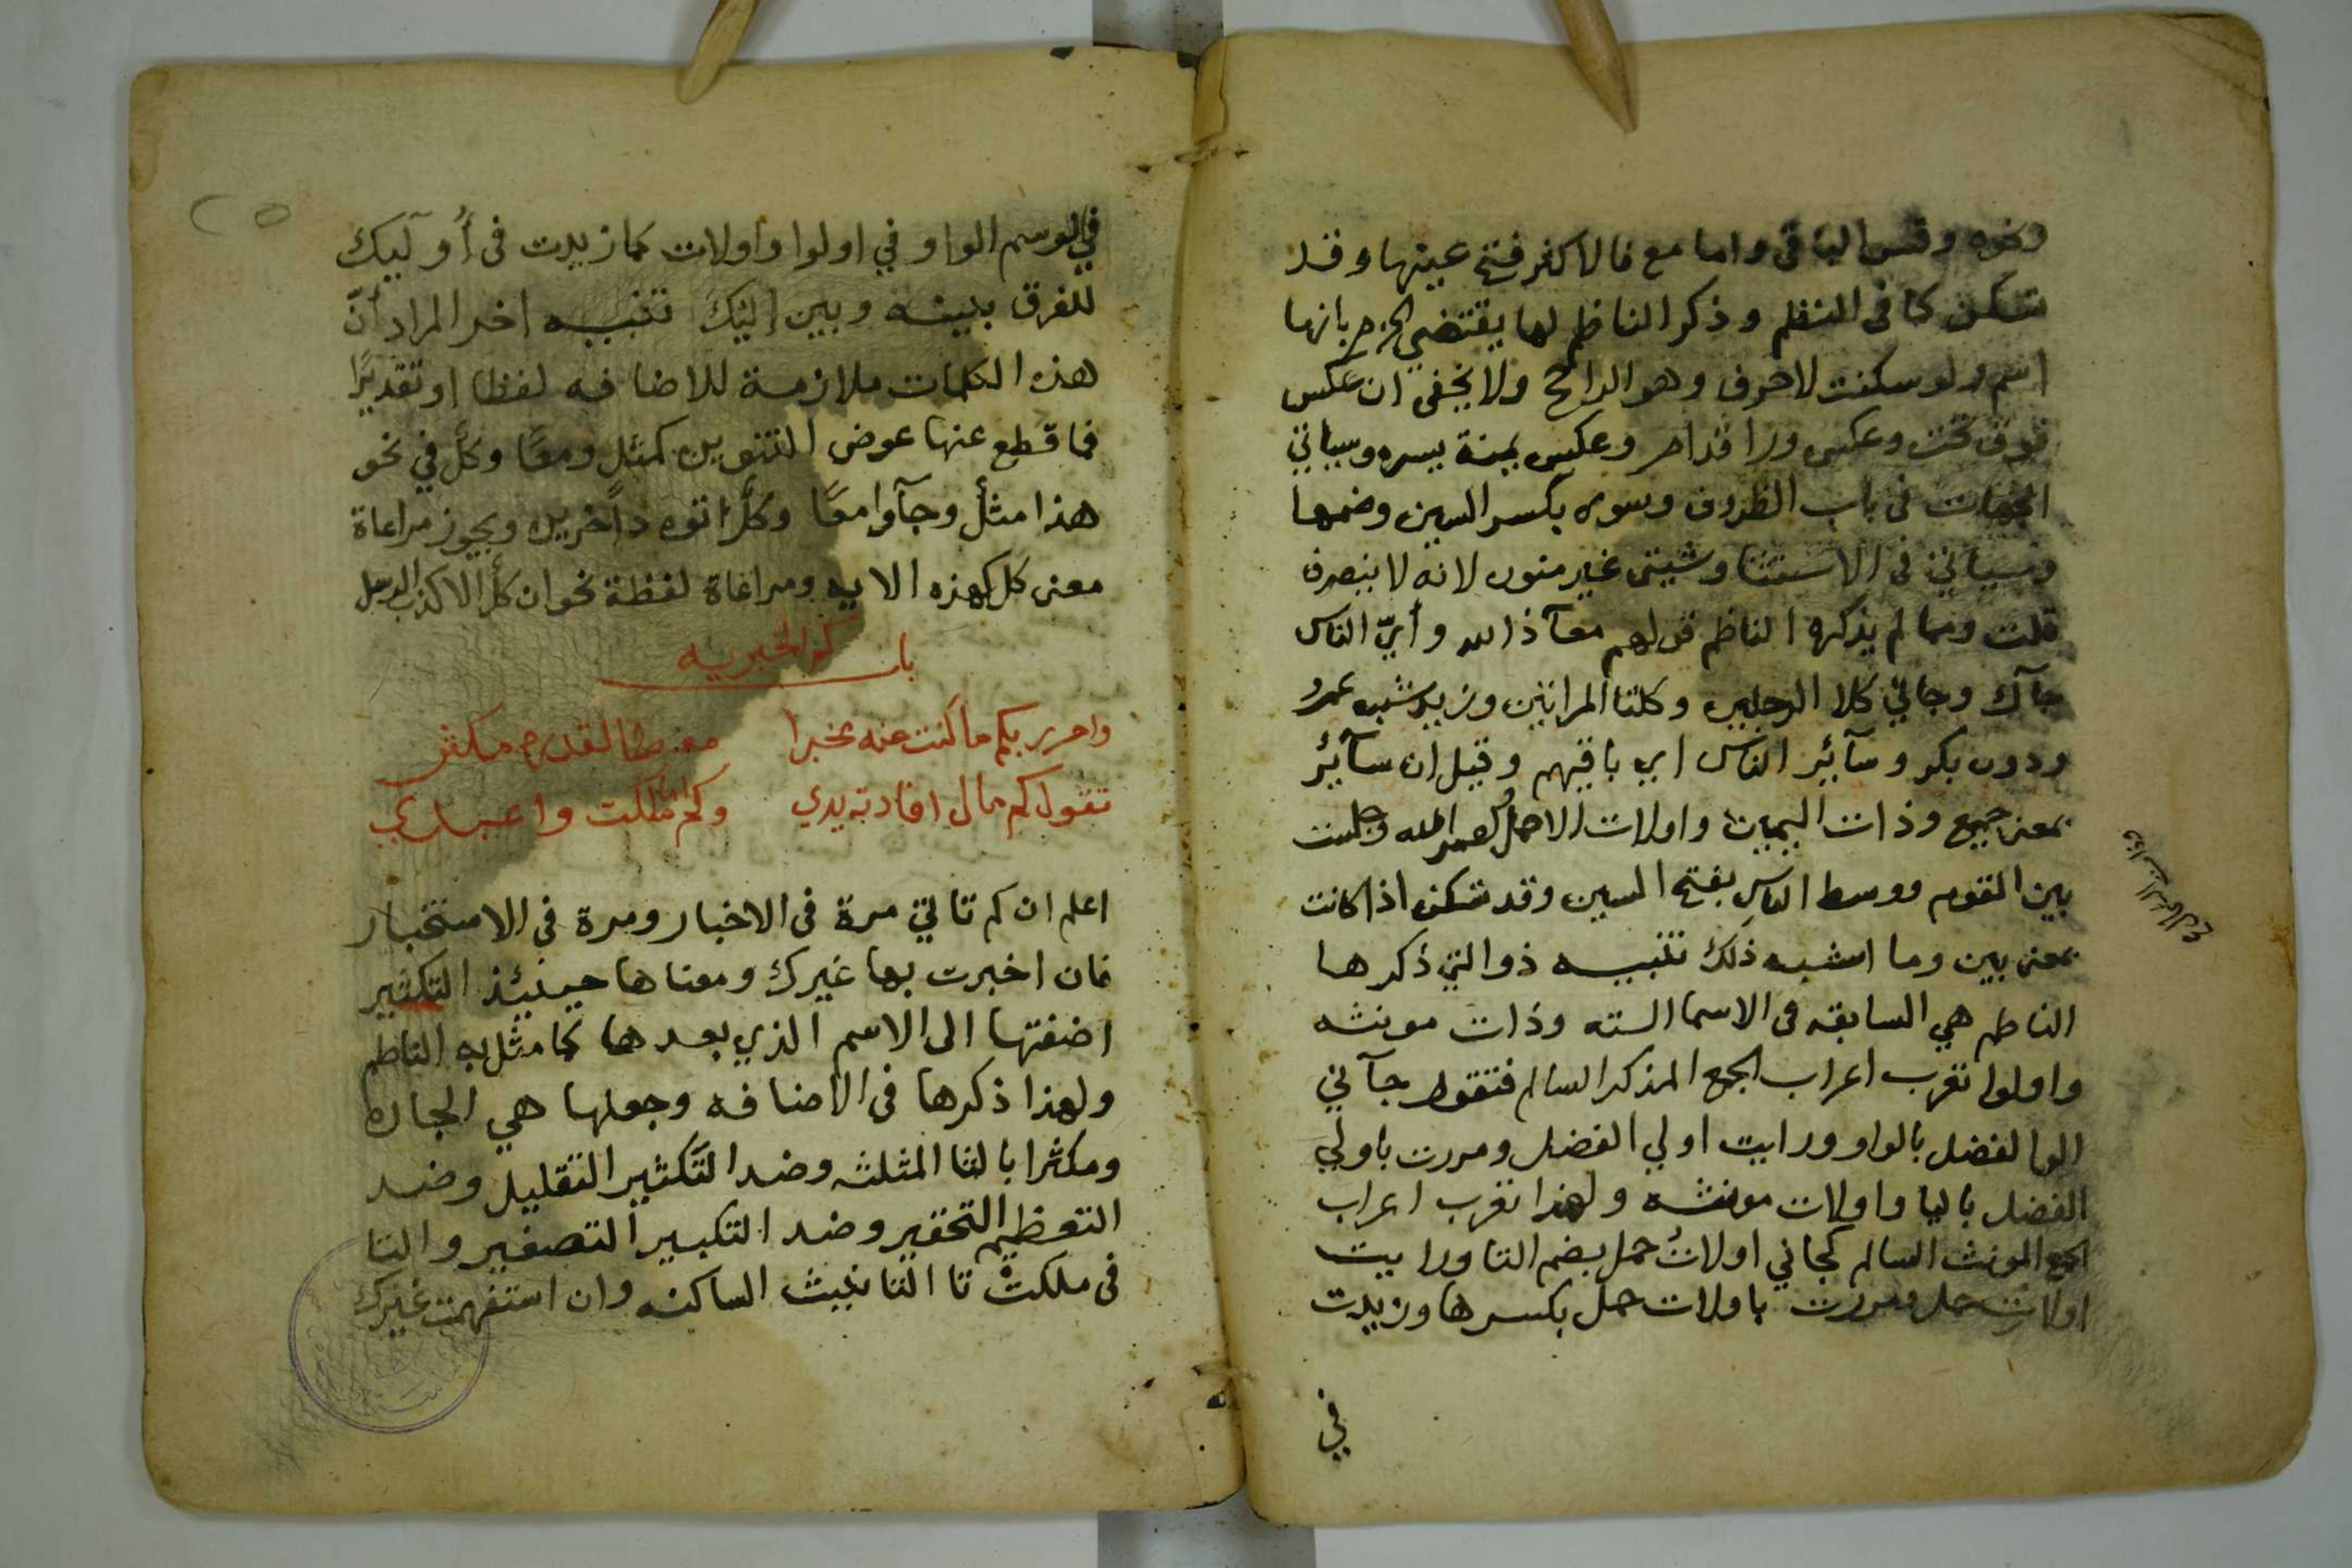 ونحوه وقس الباقي واما مع فالاكثر فتح عينها وقد
تسكن كما فى النظم وذكر الناظم لها يقتضي الجزم بانها
اسم ولو سكنت لاحرف وهو الراجح ولا يخفى ان عكس
فوق تحت وعكس ورا قدام وعكس يمنة يسره وسياتي
الجهات فى باب الظروف وسوى بكسر السين وضمها
وسياتي فى الاستثنا وشيتى غير منون لانه لا ينصرف
قلت ومما لم يذكره الناظم قولهم معآذ الله وأيّ الناس
جآك وجاني كلا الرجلين وكلتا المراتين وزيد شبه عمرو
ودون بكر وسآئر الناس اي باقيهم وقيل ان سآئر
بمعنى جميع وذات اليمين واولات الاحمال لعمر الله وجلست
بين القوم ووسط الناس بفتح السين وقد تسكن اذا كانت
بمعنى بين وما اشبه ذلك تنبيه ذو التي ذكرها
الناظم هي السابقه فى الاسما السته وذات مونثه
واولوا تعرب اعراب الجمع المذكر السالم فتقول جآني
الوا لفضل بالواو ورايت اولي الفضل ومررت باولي
الفضل باليا واولات مونثه ولهذا تعرب اعراب
الجمع المونث السالم كجاني اولاتُ حمل بضم التا ورايت
اولاتِ حمل ومررت باولات حمل بكسرها وزيدت
في
في الرسم الواو في اولوا واولات كما زيدت فى أُولٓيك
للفرق بينه وبين اليك تنبيه اخر المراد أنّ
هذه الكلمات ملازمة للاضافه لفظا او تقديرًا
فما قطع عنها عوض التنوين كمثل ومعًا وكل في نحو
هذا مثل وجآوا معًا وكلٌ اتوه داخرين ويجوز مراعاة
معنى كل كهذه الايه ومراعاة لفظة نحو ان كل الا كذب الرسل
باب كم الخبريه
واجرر بكم ما كنت عنه مخبرا معظما لقدره مكثرا
تقول كم مال افادته يدي وكم اما ملكت واعبد
اعلم ان كم تاتي مرة فى الاخبار ومرة فى الاستخبار
فان اخبرت بها غيرك ومعناها حينئذ التكثير
اضفتها الى الاسم الذي بعدها كما مثل به الناظم
ولهذا ذكرها فى الاضافه وجعلها هي الجاره
ومكثرا بالثا المثلثه وضد التكثير التقليل وضد
التعظيم التحقير وضد التكبير التصغير والتا
فى ملكتْ تا التانيث الساكنه وان استفهمت غيرك